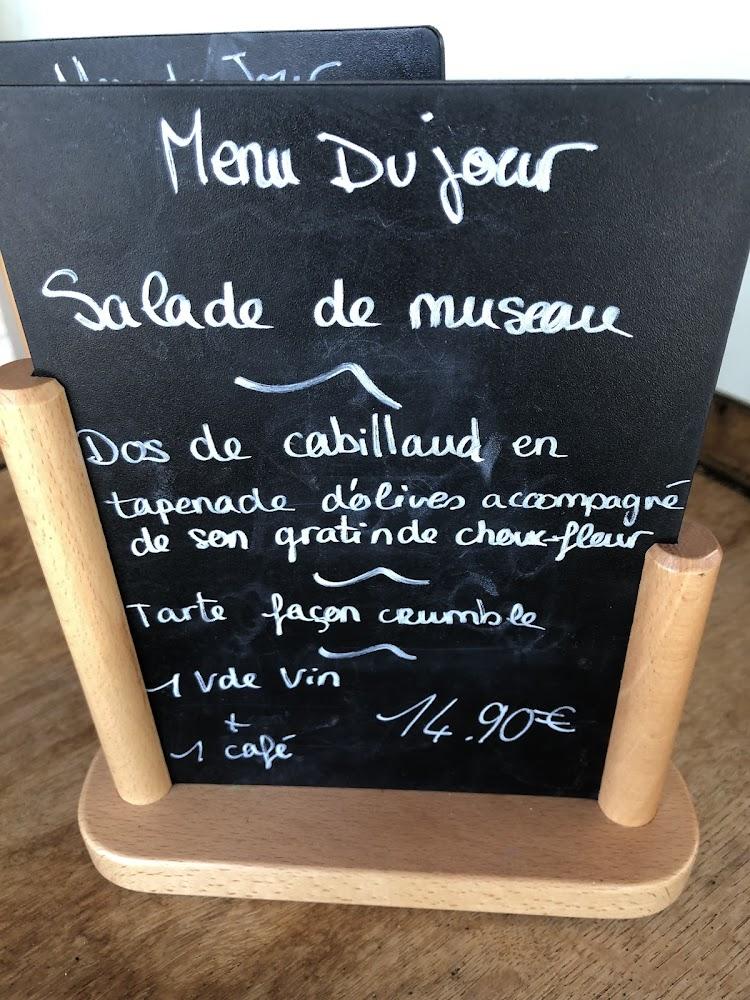 Menu Du Jour
Menu Du jour
Salade de museau
Dos de cabillaud en
tapenade d'olives accompagné
de son gratin de choux-fleur
Tarte façon crumble
1 V de Vin
+
1 café
14.90€